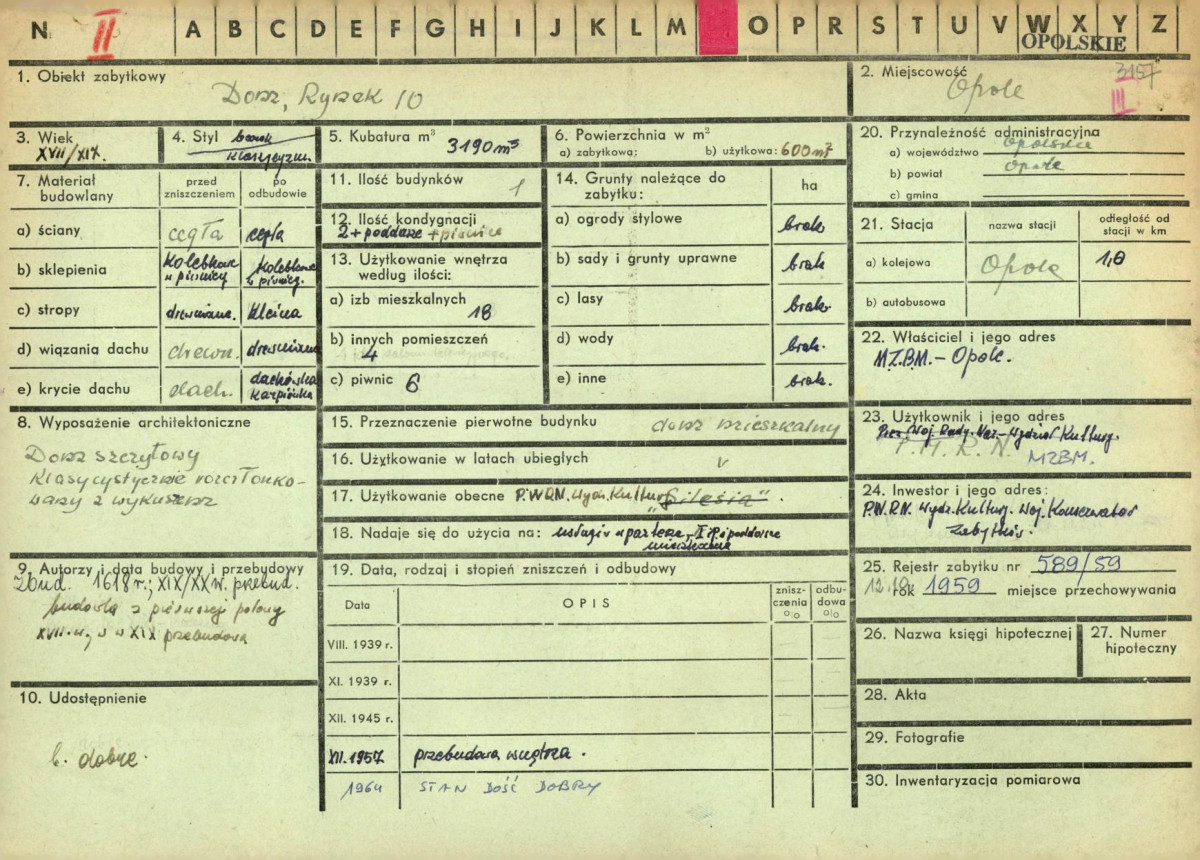 N II A B C D E F G H I J K L M O P R S T U V W X Y Z
OPOLSKIE
1. Obiekt zabytkowy
Dom, Rynek 10
2. Miejscowość
Opole
3157
III
3. Wiek
XVII/XIX.
4. Styl barok
klasycyzm
5. Kubatura m³ 3190 m³
6. Powierzchnia w m²
a) zabytkowa: b) użytkowa: 600 m²
20. Przynależność administracyjna
a) województwo opolskie
b) powiat opole
c) gmina
7. Materiał budowlany
przed zniszczeniem
po odbudowie
a) ściany cegła cegła
b) sklepienia kolebkowe w piwnicy kolebkowe w piwnicy.
c) stropy drewniane. Kleina
d) wiązania dachu drewn. drewniana
e) krycie dachu dach. dachówka karpiówka
11. Ilość budynków 1
12. Ilość kondygnacji
2 + poddasze + piwnice
13. Użytkowanie wnętrza według ilości:
a) izb mieszkalnych 18
b) innych pomieszczeń
4
c) piwnic 6
14. Grunty należące do zabytku: ha
a) ogrody stylowe brak
b) sady i grunty uprawne brak
c) lasy brak.
d) wody brak.
e) inne brak.
21. Stacja nazwa stacji odległość od stacji w km
a) kolejowa Opole 1,0
b) autobusowa
22. Właściciel i jego adres
M.Z.B.M. - Opole.
8. Wyposażenie architektoniczne
Dom szczytowy
klasycystycznie rozczłonko-
wany z wykuszem
15. Przeznaczenie pierwotne budynku dom mieszkalny
16. Użytkowanie w latach ubiegłych v
17. Użytkowanie obecne P.W.R.N. Wydz. Kultury „Silesia".
18. Nadaje się do użycia na: usługi w parterze, I p. i poddasze
mieszkania
23. Użytkownik i jego adres
Prez. Woj. Rady. Nar. - Wydział Kultury.
P.M.R.N. MZBM.
24. Inwestor i jego adres:
P.W.R.N. Wydz. Kultury. Woj. Konserwator
Zabytków.
9. Autorzy i data budowy i przebudowy
Zbud. 1618 r.; XIX/XX w. przebud.
budowla z pierwszej połowy
XVII w., w XIX przebudowa
19. Data, rodzaj i stopień zniszczeń i odbudowy
Data OPIS zniszczenia % odbudowa %
VIII. 1939 r.
XI. 1939 r.
XII. 1945 r.
XII. 1957 przebudowa wnętrza.
1964 STAN DOŚĆ DOBRY
25. Rejestr zabytku nr 589/59
12.10 rok 1959 miejsce przechowywania
26. Nazwa księgi hipotecznej
27. Numer hipoteczny
10. Udostępnienie
b. dobre.
28. Akta
29. Fotografie
30. Inwentaryzacja pomiarowa